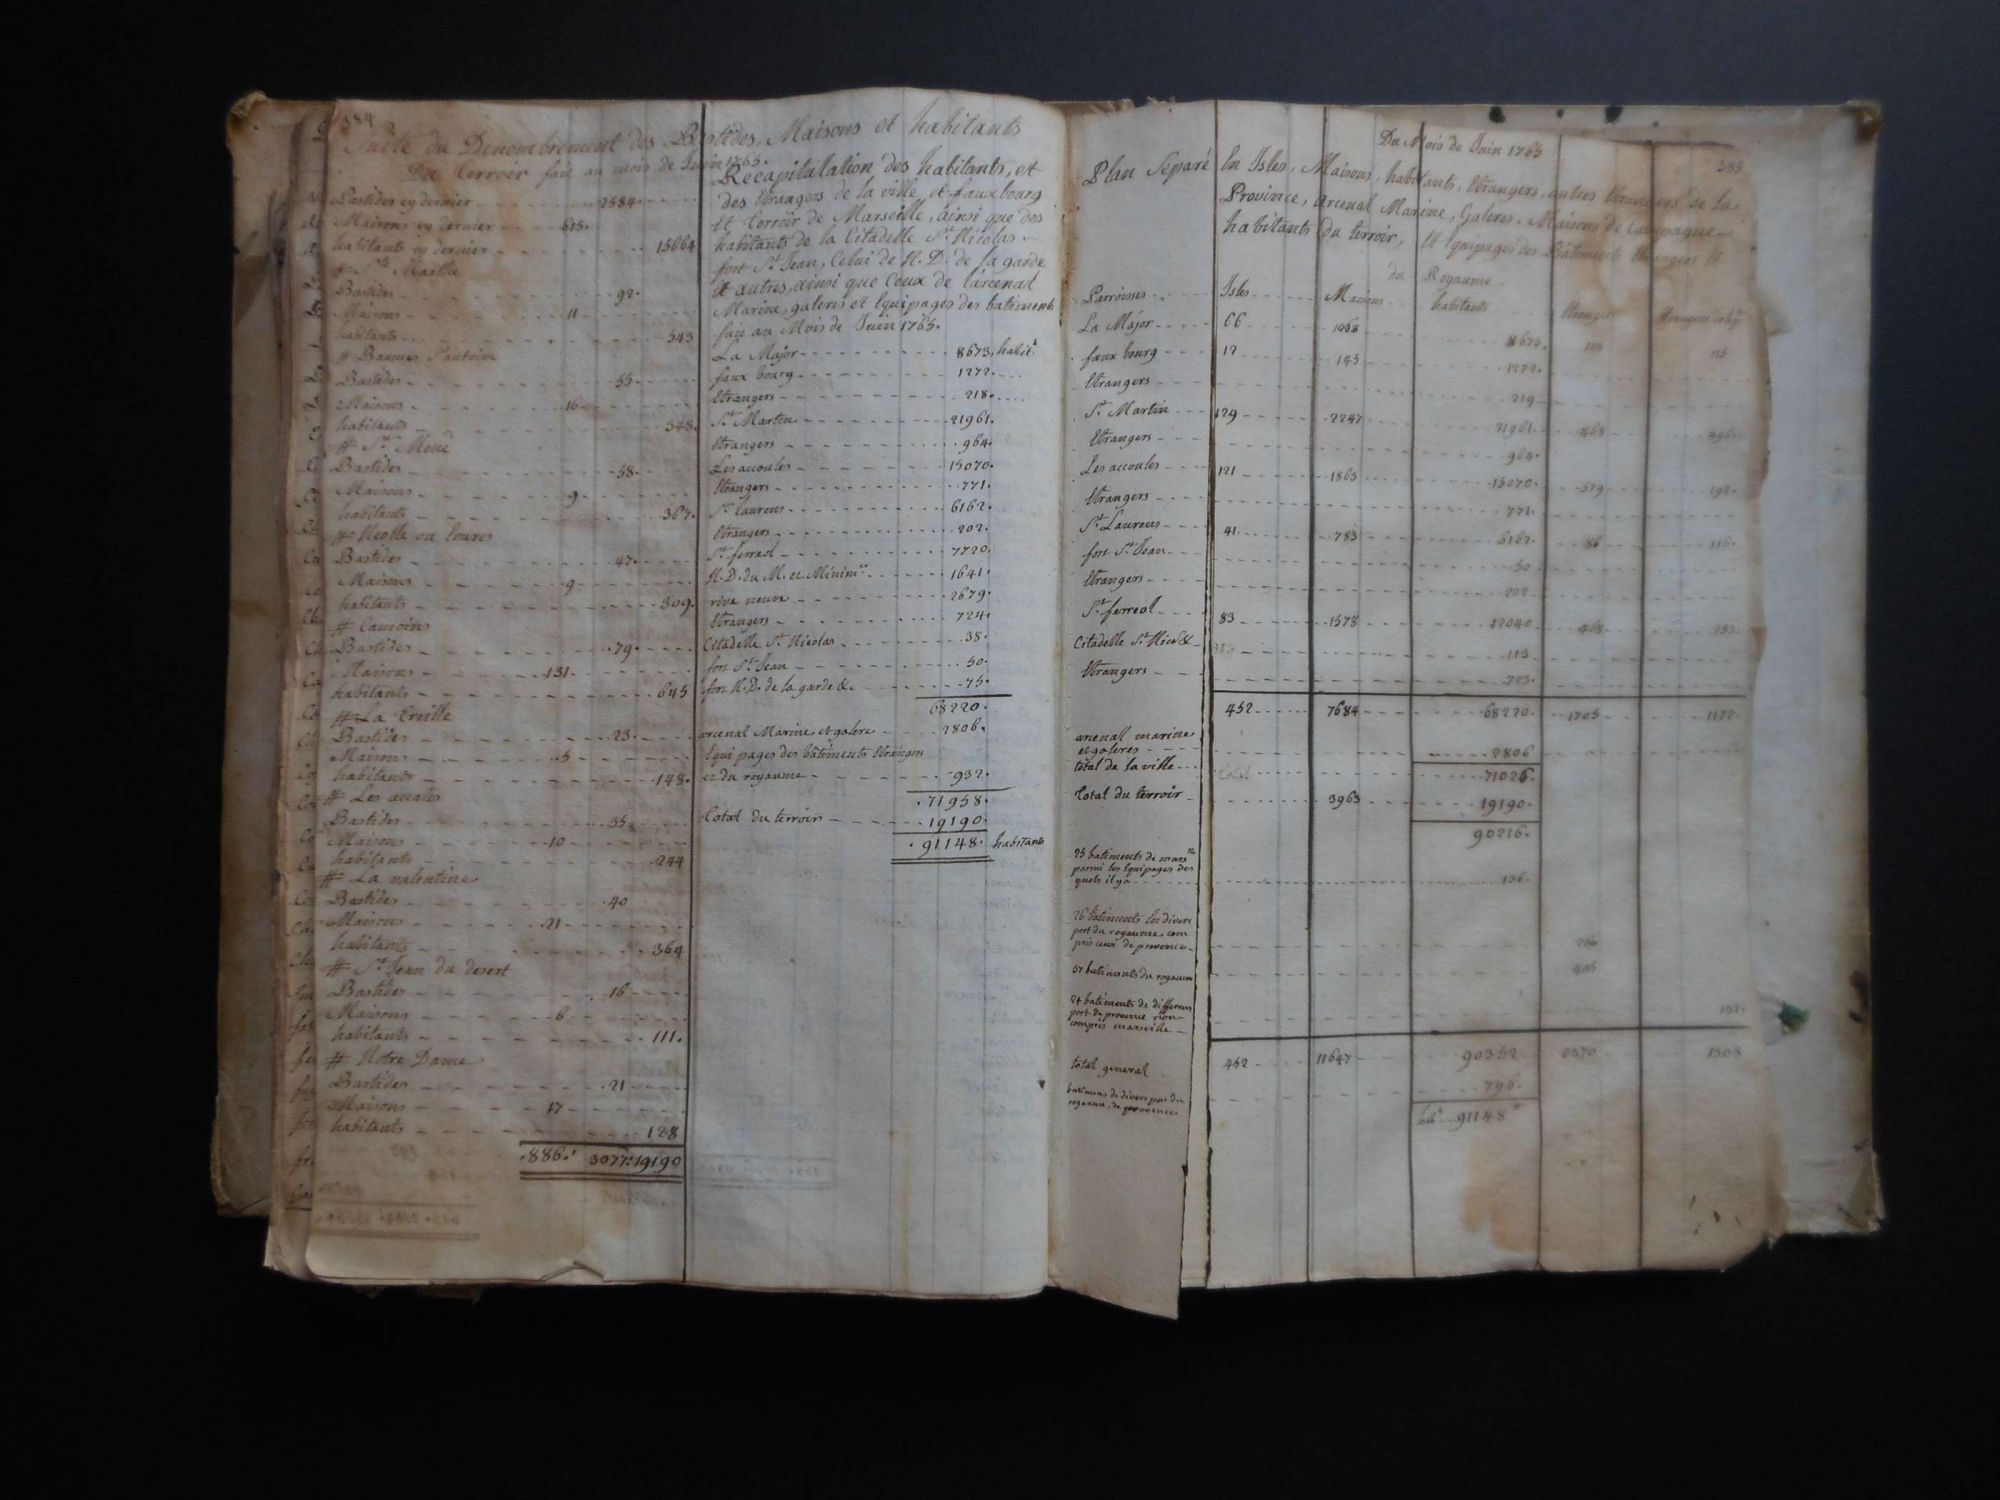 184
Suite du Denombrement des Bastides, Maisons et habitants
Du Terroir fait au mois de Juin 1765.
Bastides cy dernier 2584.
Maisons cy dernier 615.
habitants cy dernier 15664
# Ste Marthe
Bastides 92.
Maisons 11
habitants 543
# Baumes St antoine
Bastides 55
Maisons 16
habitants 548.
# St Mené
Bastides 58
Maisons 9
habitants 367.
# Neolle ou Eoures
Bastides 47.
Maisons 9
habitants 309.
# Camoins
Bastides 79.
Maisons 131
habitants 645
# La Treille
Bastides 23.
Maisons 5
habitants 148.
# Les accates
Bastides 35
Maisons 10
habitants 244
# La valentine
Bastides 40
Maisons 21
habitants 364
# St Jean du desert
Bastides 16
Maisons 6
habitants 111.
# Notre Dame
Bastides 21
Maisons 17
habitants 128
.886. 3077. 19190
Recapitulation des habitants, et
des Etrangers de la ville et fauxbourg
Et Terroir de Marseille, ainsi que des
habitants de la Citadelle St Nicolas
fort St Jean, Celui de N. D. de la garde
et autres, ainsi que Ceux de l'arcenal
Marine, galeres et Equipages des batiments
fait au Mois de Juin 1765.
La Major 8673. habits
faux bourg 1272.
Etrangers 218.
St Martin 21961.
Etrangers 964.
Les accoules 15070.
Etrangers 771.
St Laurens 6162.
Etrangers 202.
St ferreol 7720.
N. D. du M. et Minimes 1641.
rive neuve 2679.
Etrangers 724.
Citadelle St Nicolas 38.
fort St Jean 50.
fort N. D. de la garde &. 75.
68220.
arcenal Marine et galere 2806.
Equipages des bâtiments Etrangers
et du royaume 932.
.71958.
Total du terroir 19190.
.91148. habitants
Du Mois de Juin 1765
385
Plan Separé En Isles, Maisons, habitants, Etrangers, autres Etrangers de la
Province, arcenal Marine, Galeres, Maisons de Campagne
habitants du terroir, Et Equipages des Bâtiments Etrangers et
du Royaume
Parroisses Isles Maisons habitants Etrangers
La Major 66 1068 8673. 115
faux bourg 12 145 1272.
Etrangers 219
St Martin 129 2247 21961. 468 496.
Etrangers 964.
Les accoules 121 1863 15070. 579 192.
Etrangers 771.
St Laurens 41 783 6162. 86 116.
fort St Jean 50
Etrangers 202
St ferreol 83 1578 12040 468 253.
Citadelle St Nicol & 113
Etrangers 723.
452 7684 68220 1705 1172
arcenall marine
et galeres 2806
total de la ville 71026.
Total du terroir 3963 19190.
90216.
25 batiments de marslle
parmi les Equipages des
quels il ya 136.
26 batiments En divers
port du royaume, com
pris ceux de provence 260
37 batiments du royaum 405
24 batiments de differens
port de provence non
compris marseille
total general 452 11647 90352 2370 1308
batimens de divers port du
royaume, de provence 796.
habs 91148